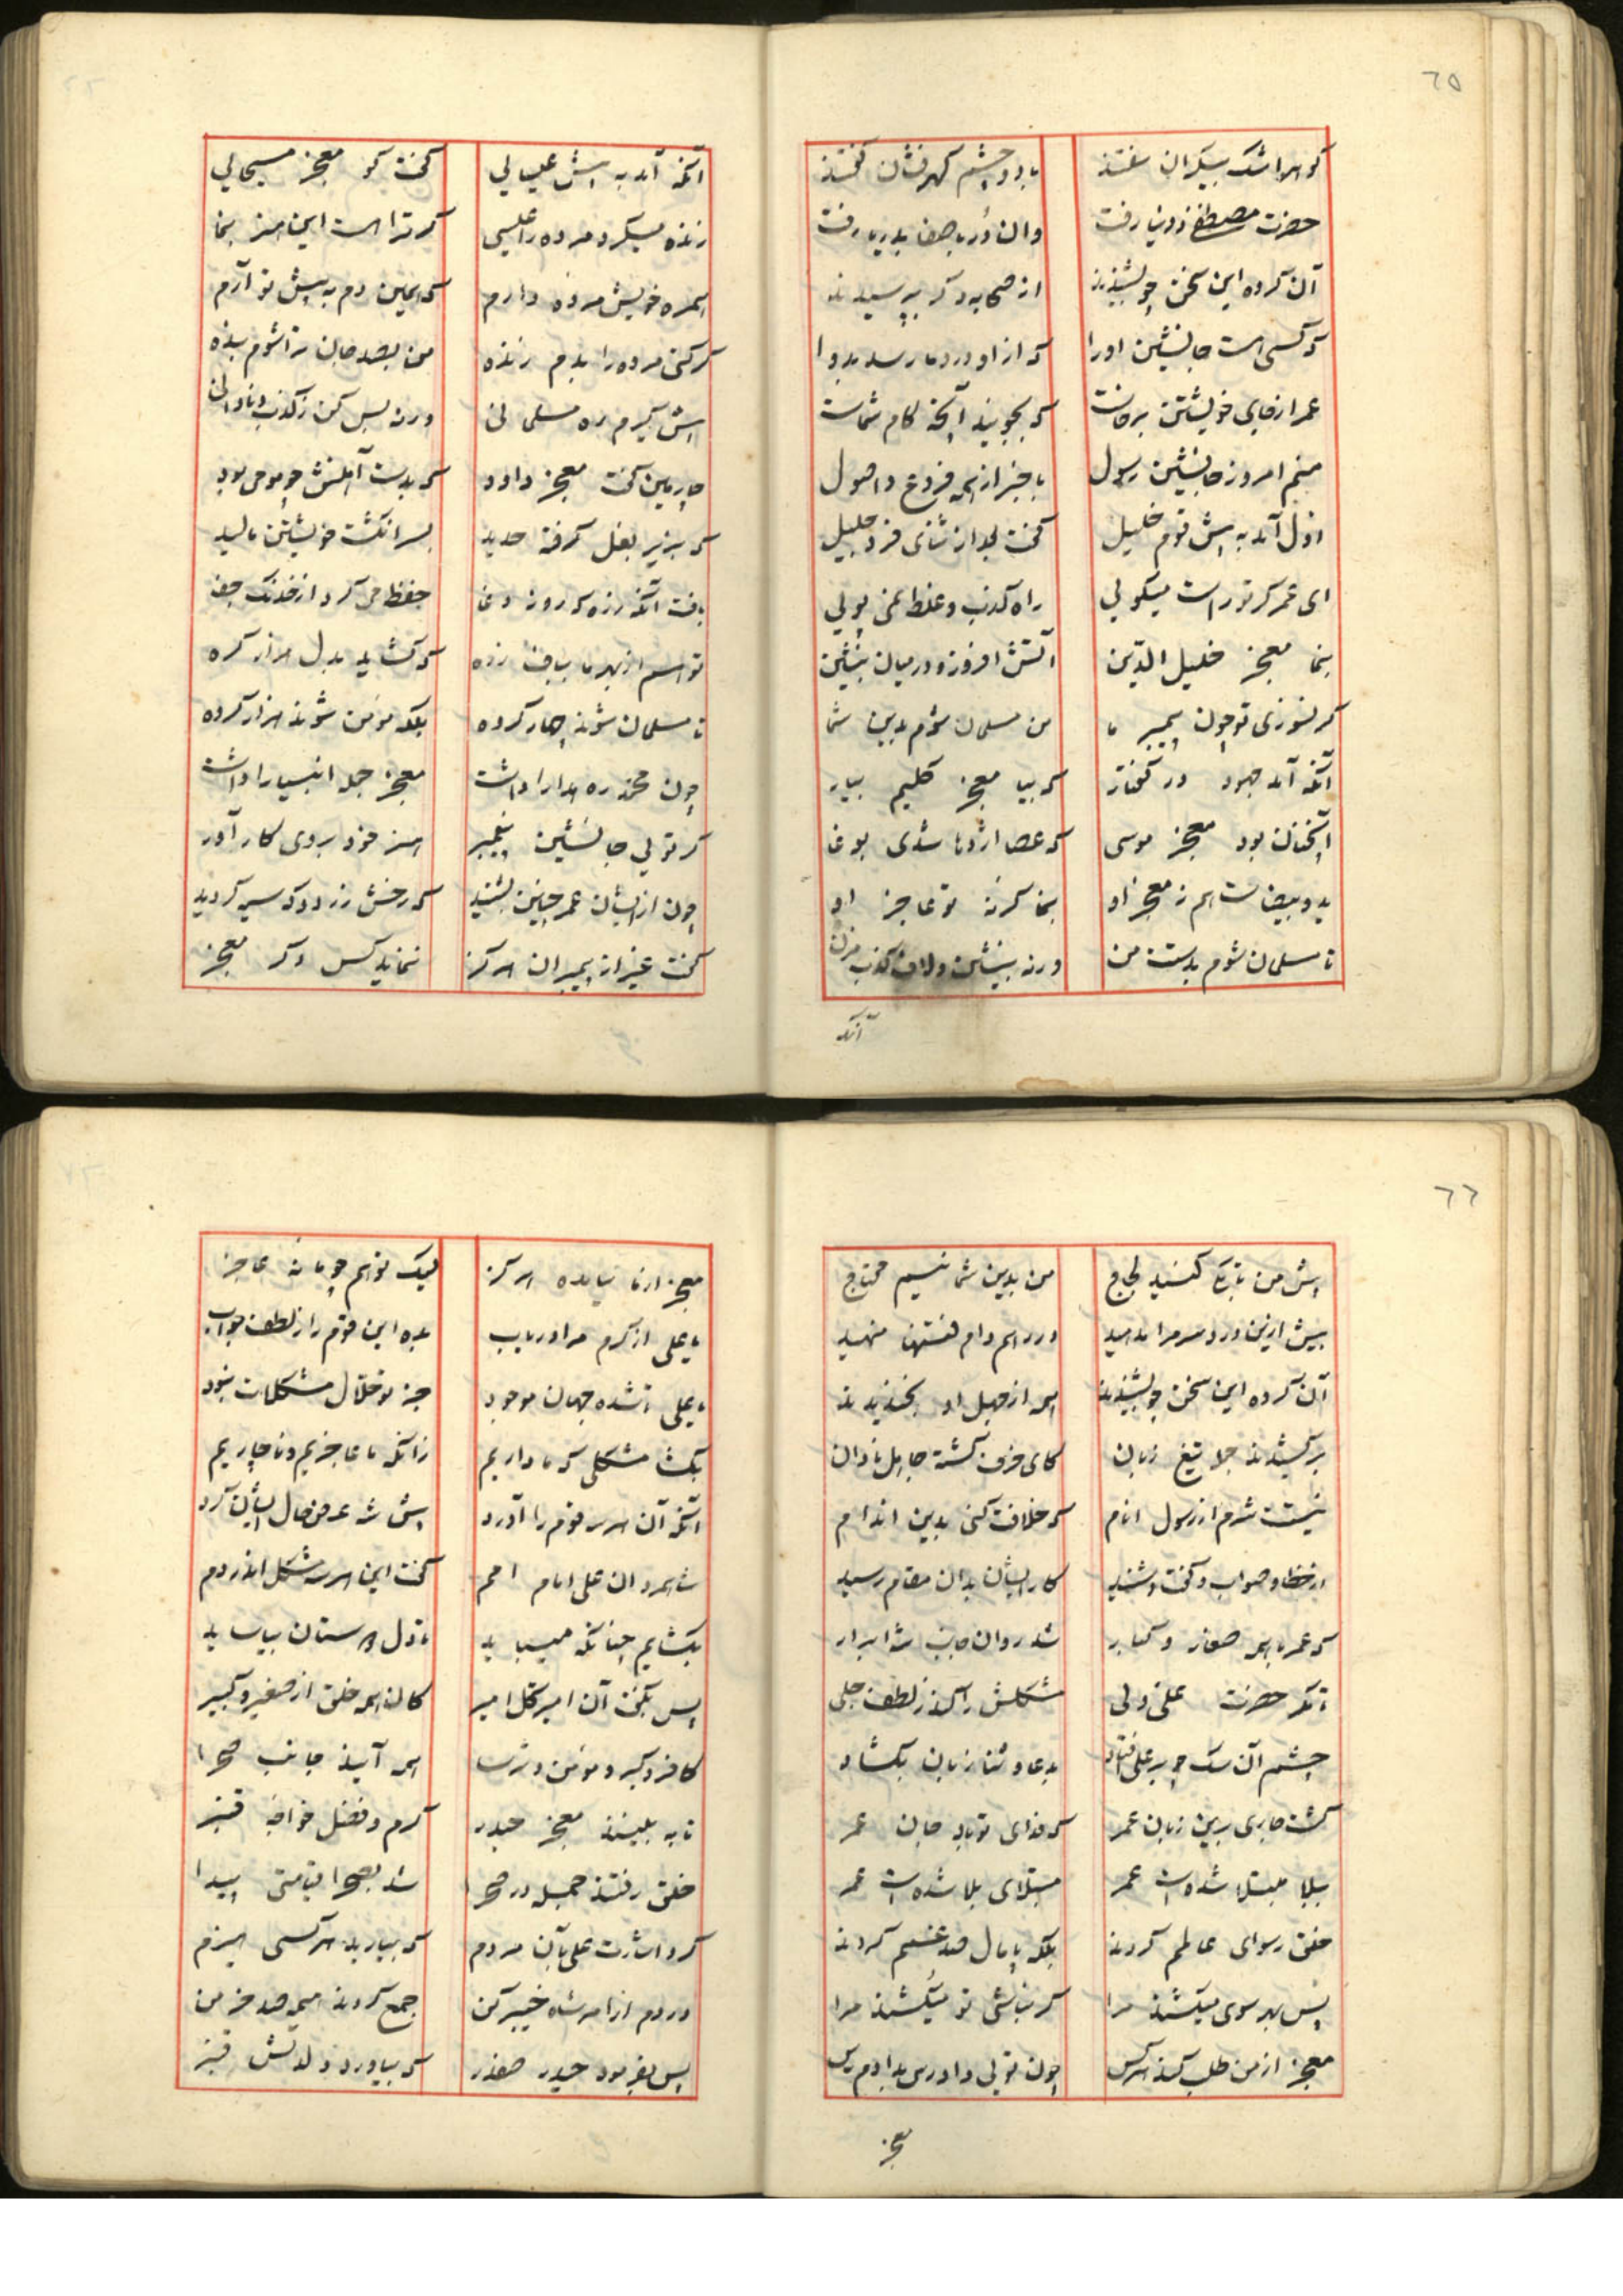 ٦٥
گوهر اشک بیکران سفتند
با دو چشم گهرفشان گفتند
حضرت مصطفی ز دنیا رفت
وان در با صفا بدریا رفت
آن گروه این سخن چو بشنیدند
از صحابه دگر بپرسیدند
که کسی هست جانشین او را
که از او درد ما رسد بدوا
عمر از جای خویشتن برخاست
که بجویید آنچه کام شماست
منم امروز جانشین رسول
با خبر از همه فروع و اصول
اول آمد به پیش قوم خلیل
گفت بعد از ثنای فرد جلیل
ای عمر گر تو راست میگویی
راه کذب و غلط نمی پویی
بنما معجز خلیل الدین
آتش افروز و در میان بنشین
گر نسوزی تو چون پیمبر ما
من مسلمان شوم بدین شما
آنگه آمد جهود در گفتار
که بیا معجز کلیم بیار
آنچنان بود معجز موسی
که عصا اژدها شدی بوغا
ید و بیضاست هم ز معجز او
بنما گرنه تو عاجز او
تا مسلمان شوم بدست من
ورنه بنشین و لاف کذب مزن
آنگه
آنگه آمد به پیش عیسایی
گفت کو معجز مسیحایی
زنده میکرد مرده را عیسی
گر ترا هست این هنر بنما
همره خویش مرده دارم
که همین دم به پیش تو آرم
گر کنی مرده را بدم زنده
من بصد جان ترا شوم بنده
پیش گیرم ره مسلمانی
ورنه بس کن ز کذب و نادانی
چارمین گفت معجز داود
که بدست آهنش چو موم بود
که بزیر بغل گرفته حدید
بسر انگشت خویشتن مالید
بافت آنگه زره که روز وغا
حفظ می کرد از خدنگ جفا
تو هم از بهر ما بباف زره
که گشاید ز دل هزار گره
تا مسلمان شوند چهار گروه
بلکه مومن شوند هزار گروه
چون محمد ره هدا را داشت
معجز جمله انبیا را داشت
گر تویی جانشین پیغمبر
هنر خود بروی کار آور
چون از ایشان عمر چنین بشنید
که رخش زرد و گه سیه گردید
گفت غیر از پیمبران هرگز
ننماید کس دگر معجز
٦٦
پیش من تا بکی کنید لجاج
من بدین شما نیم محتاج
بیش ازین دردسر مرا مدهید
در رهم دام فتنها منهید
آن گروه این سخن چو بشنیدند
همه از جهل او بخندیدند
برکشیدند جمله تیغ زبان
کای خرف گشته جاهل نادان
نیستت شرم از رسول انام
که خلافت کنی بدین اندام
از خطا و صواب و گفت و شنید
کار ایشان بدان مقام رسید
که عمر با همه صغار و کبار
شد روان جانب شه ابرار
تا مگر حضرت علی ولی
مشکلش را کند ز لطف جلی
چشم آن سگ چو بر علی فتاد
بدعا و ثنا زبان بگشاد
گشت جاری برین زبان عمر
که فدای تو باد جان عمر
ببلا مبتلا شده است عمر
مبتلای بلا شده است عمر
خلق رسوای عالمم کردند
بلکه پامال صد غمم کردند
پس بهر سوی میکشند مرا
گر نباشی تو میکشند مرا
معجز از من طلب کند هر کس
چون تویی دادرس بدادم رس
معجز
معجز از ما نیامده هرگز
لیک تو هم چو ما نه عاجز
یا علی از کرم مرا دریاب
بده این قوم را ز لطف جواب
یا علی تا شده جهان موجود
جز تو حلال مشکلات نبود
بگشا مشکلی که ما داریم
زانکه ما عاجزیم و ناچاریم
آنگه آن هر سه قوم را آورد
پیش شه عرض حال ایشان کرد
شاه مردان علی امام امم
گفت این هر سه مشکل اندر دم
بگشایم چنانکه میباید
تا دل دوستان بیاساید
پس بگفت آن امیر کل امیر
کان همه خلق از صغیر و کبیر
کافر و گبر و مومن و ترسا
همه آیند جانب صحرا
تا به بینند معجز حیدر
کرم و فضل خواجه قنبر
خلق رفتند جمله در صحرا
شد بصحرا قیامتی پیدا
کرد اشارت علی بآن مردم
که بیارید هر کسی هیزم
در دم از امر شاه خیبر کن
جمع کردند هیمه صد خرمن
پس بفرمود حیدر صفدر
که بیاورد دلدلش قنبر